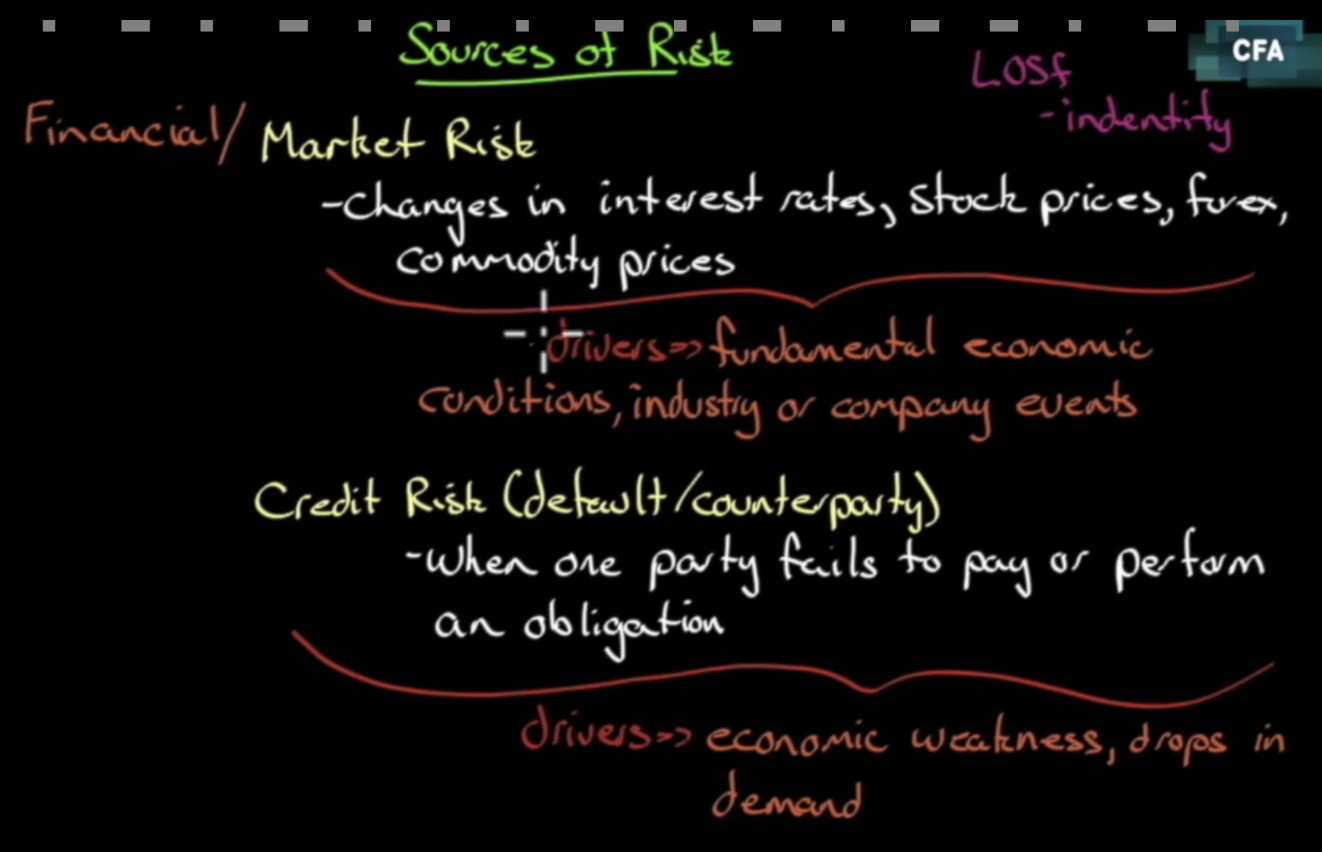 Sources of Risk
CFA
LOSf
-indentify
Financial/ Market Risk
-changes in interest rates, stock prices, forex,
commodity prices
drivers=> fundamental economic
conditions, industry or company events
Credit Risk (default/counterparty)
-when one party fails to pay or perform
an obligation
drivers=> economic weakness, drops in
demand